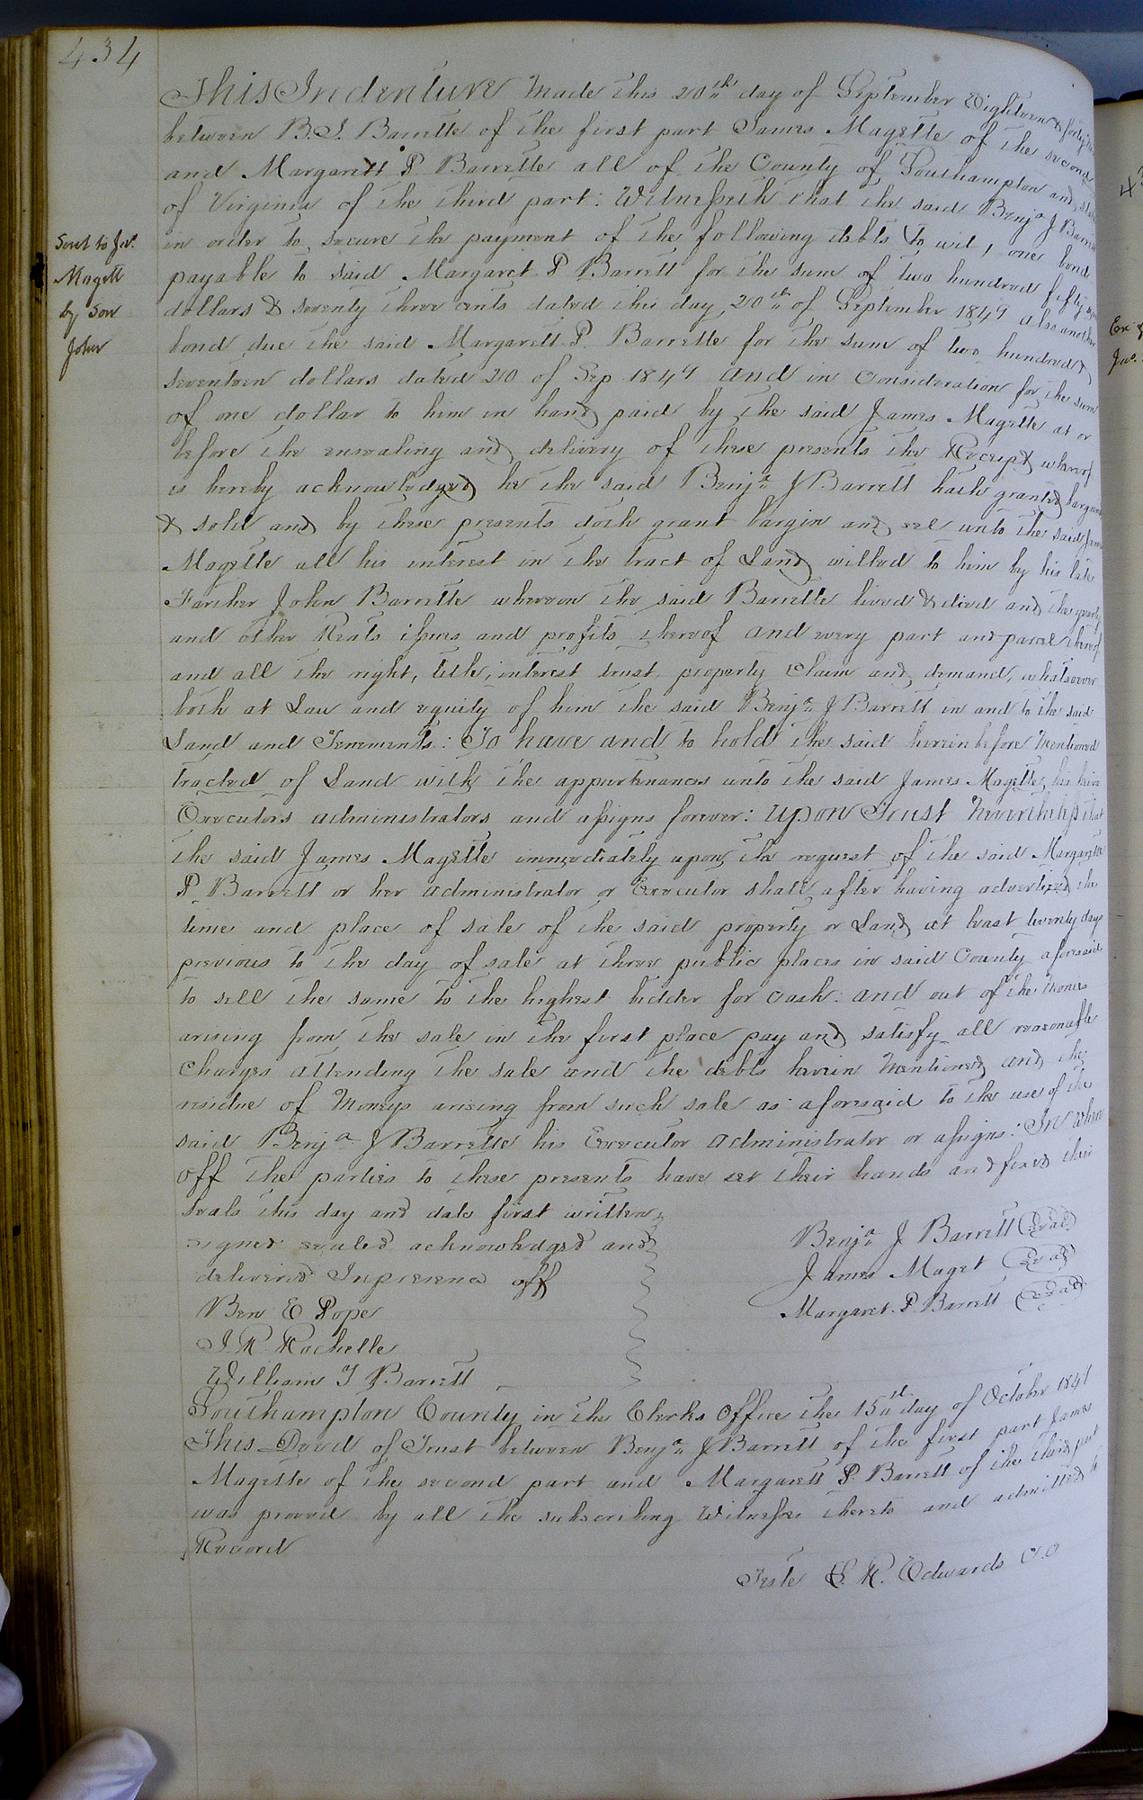 434
This Indenture Made this 20th day of September Eighteen & forty
between B. J. Barrette of the first part James Magette of the second
and Margarett P Barrette all of the County of Southampton and State
of Virginia of the third part: Witnesseth that the said Benja J Barrett
in order to secure the payment of the following debts to wit, one bond
payable to said Margaret P Barrett for the sum of two hundred fifty
dollars & seventy three cents dated this day 20th of September 1849 also another
bond due the said Margarett P. Barrette for the sum of two hundred &
seventeen dollars dated 20 of Sep 1849 and in consideration for the sum
of one dollar to him in hand paid by the said James Magette at or
before the ensealing and delivery of these presents the Receipt whereof
is hereby acknowledged he the said Benja J Barrett hath granted bargain
& sold and by these presents doth grant bargin and sel unto the said James
Magette all his interest in the tract of Land willed to him by his late
Farther John Barrette whereon the said Barrette lived & died and the
and other Reats issues and profits thereof and every part and parcel thereof
and all the right, title, interest trust, property claim and demand, whatsoever
both at Law and equity of him the said Benja J Barrett in and to the said
Land and Tenements: To have and to hold the said herein before Mentioned
tracted of Land with the appurtenances unto the said James Magette, his heirs
Executors administrators and assigns forever: upon Trust Nevertheless that
the said James Magette immediately upon the request of the said Margarette
P Barrett or her administrator or Executor shall after having advertized the
time and place of sale of the said property or Land at least twenty days
previous to the day of sale at three public places in said County aforesaid
to sell the same to the highest bidder for cash: and out of the Monies
arising from the sale in the first place pay and satisfy all reasonable
Charges attending the sale and the debts herein Mentioned and the
residue of Moneys arising from such sale as aforesaid to the use of the
said Benja J Barrette his Executor administrator or assigns: In When
off the parties to these presents have set their hands and fixed their
Seals this day and date first written
signed sealed acknowledged and
delivered Inpresence off
Benja J Barrett (Seal)
James Maget (Seal)
Margaret P Barrett (Seal)
Ben E Pope
J. R. Rochelle
William T Barrett
Southampton County in the Clerks Office the 15th day of October 1849
This Deed of Trust between Benja J Barrett of the first part James
Magette of the second part and Margarett P. Barrett of the third part
was proved by all the subscribing Witnesses thereto and admitted to
Record
Teste L. R. Edwards C.C
Sent to Jas.
Magett
by Son
John